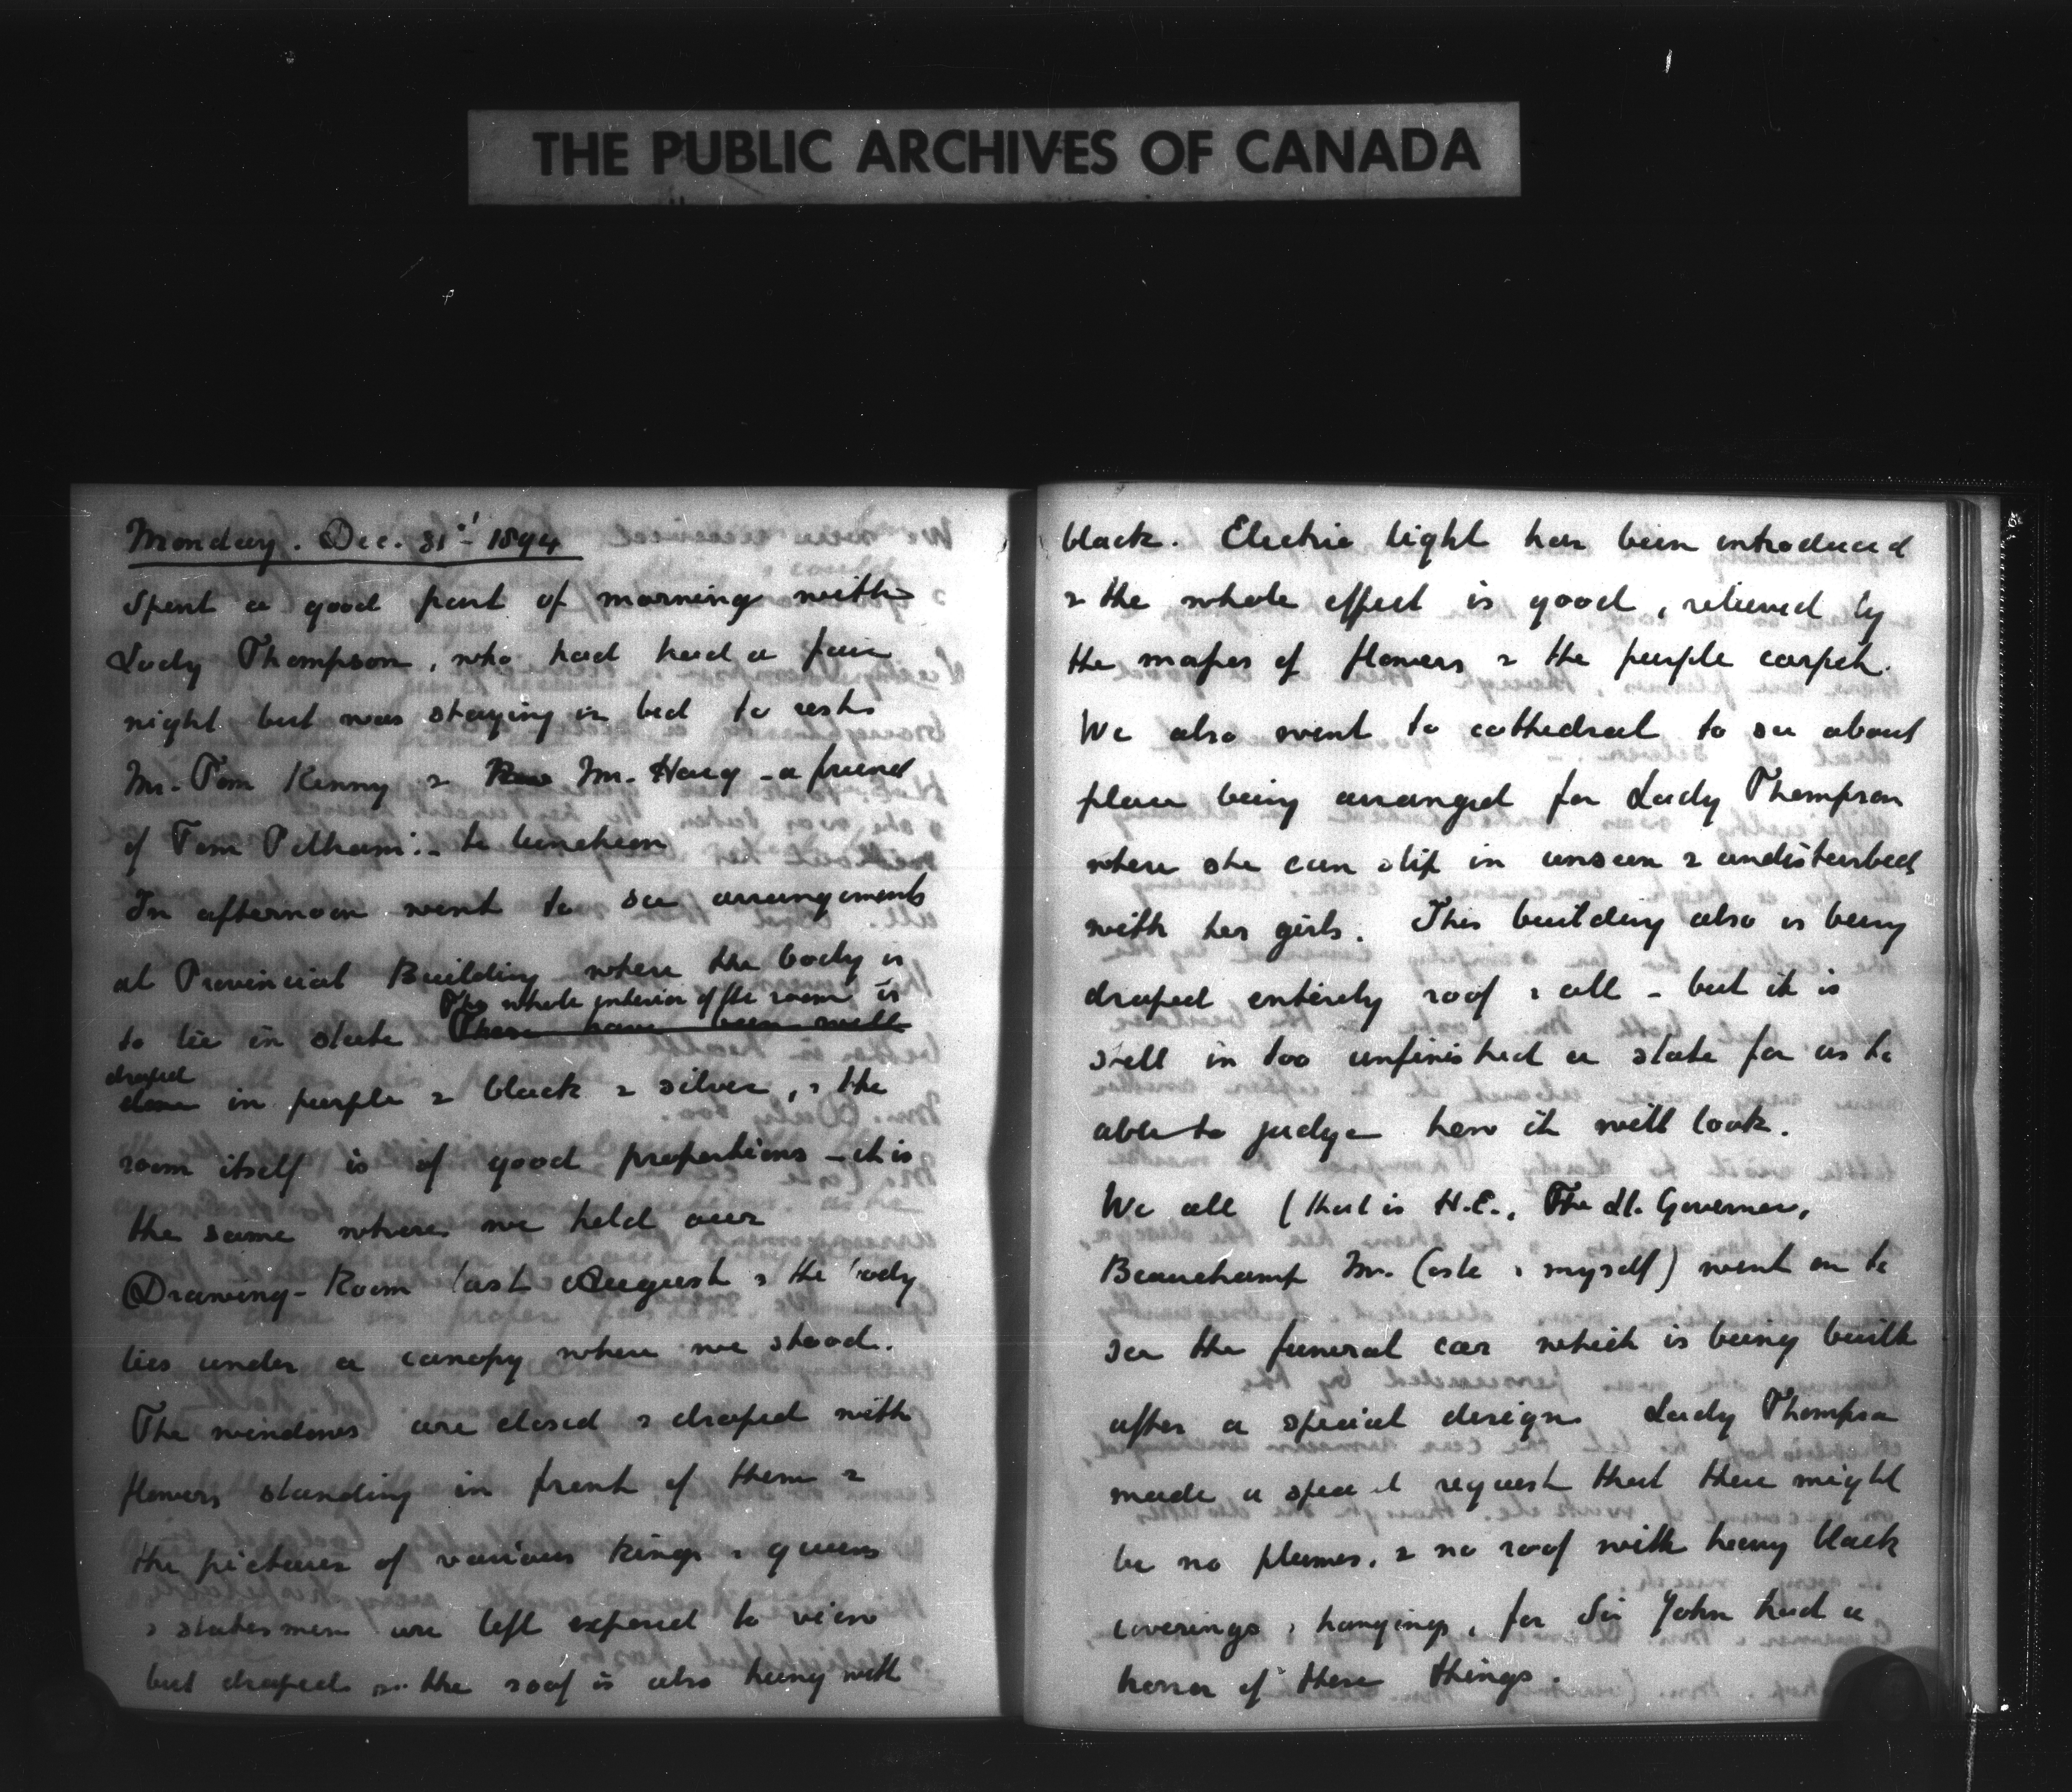 THE PUBLIC ARCHIVES OF CANADA
Monday. Dec. 31st 1894
Spent a good part of morning with
Lady Thompson, who had had a fair
night but was staying in bed to rest
Mr. Tom Kenny & Mr. Haig - a friend
of Tom Pelham:- to luncheon
In afternoon went to see arrangements
at Provincial Building where the body is
to lie in state The whole interior of the room is
There have been well
draped
done in purple & black & silver, & the
room itself is of good proportions - it is
the same where we held our
Drawing-Room last August & the body
lies under a canopy where we stood.
The windows are closed & draped with
flowers standing in front of them &
the pictures of various kings & queens
& statesmen are left exposed to view
but draped the roof is also hung with
black. Electric light has been introduced
& the whole effect is good, relieved by
the masses of flowers & the purple carpet.
We also went to cathedral to see about
place being arranged for Lady Thompson
where she can slip in unseen & undisturbed
with her girls. This building also is being
draped entirely roof & all - but it is
still in too unfinished a state for us to
able to judge how it will look.
We all (that is H.E., The Lt. Governor,
Beauchamp Mr. Coste & myself) went on to
see the funeral car which is being built
after a special design Lady Thompson
made a special request that there might
be no plumes, & no roof with heavy black
coverings & hangings, for Sir John had a
horror of these things.